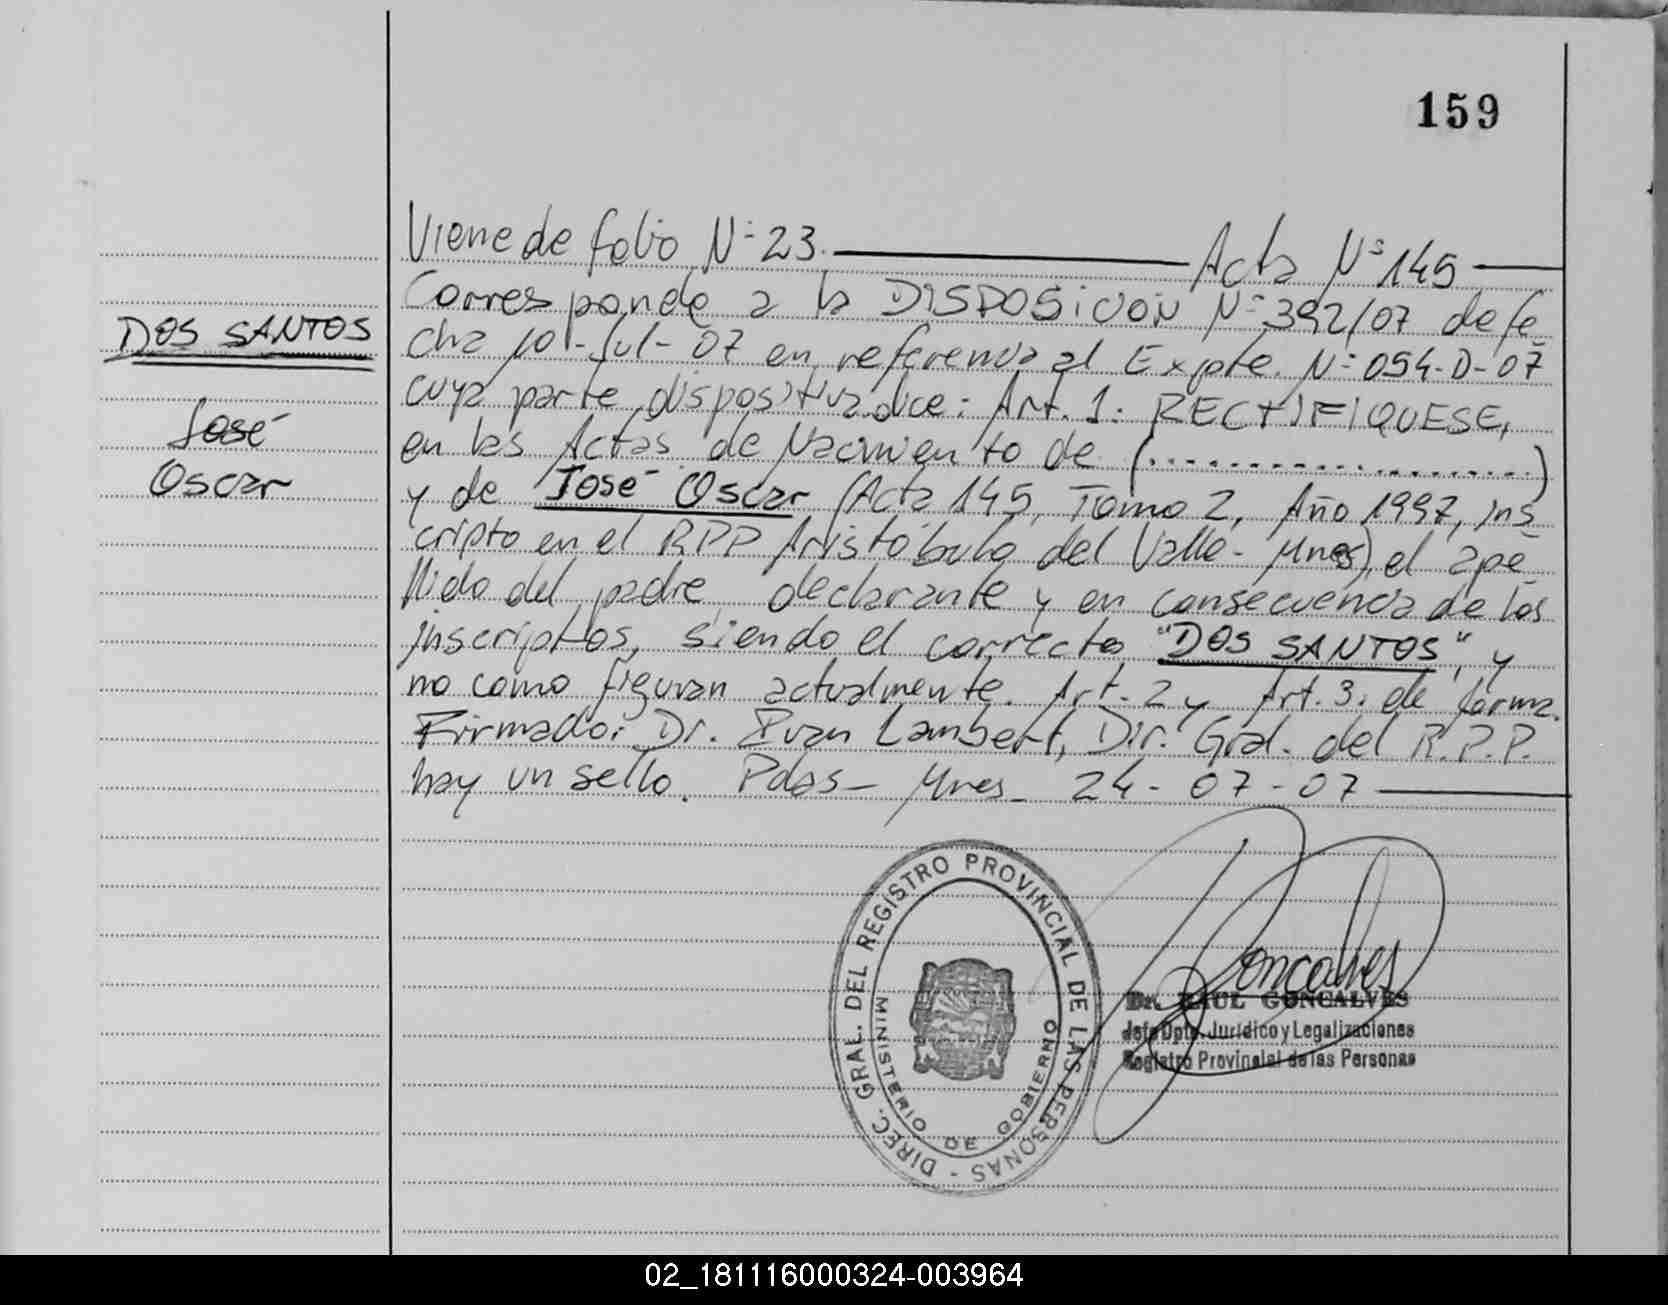 159
Viene de folio N° 23. Acta N° 145
DOS SANTOS
José
Oscar
Corresponde a la DISPOSICION N° 392/07 de fe
cha 10-Jul-07 en referencia al Expte. N° 054-D-07
cuya parte dispositiva dice: Art. 1: RECTIFIQUESE,
en las Actas de Nacimiento de (....................)
y de José Oscar (Acta 145, Tomo 2, Año 1997, ins
cripto en el RPP Aristóbulo del Valle - Mnes), el ape
llido del padre declarante y en consecuencia de los
inscriptos, siendo el correcto "DOS SANTOS", y
no como figuran actualmente. Art. 2 y Art. 3: de forma.
Firmado: Dr. Ivan Lambert, Dir. Gral. del R.P.P.
hay un sello. Pdas - Mnes - 24 - 07 - 07
DIREC. GRAL. DEL REGISTRO PROVINCIAL DE LAS PERSONAS -
MINISTERIO DE GOBIERNO
Goncalves
Dr. RAUL GONCALVES
Jefe Dpto. Jurídico y Legalizaciones
Registro Provincial de las Personas
02_181116000324-003964